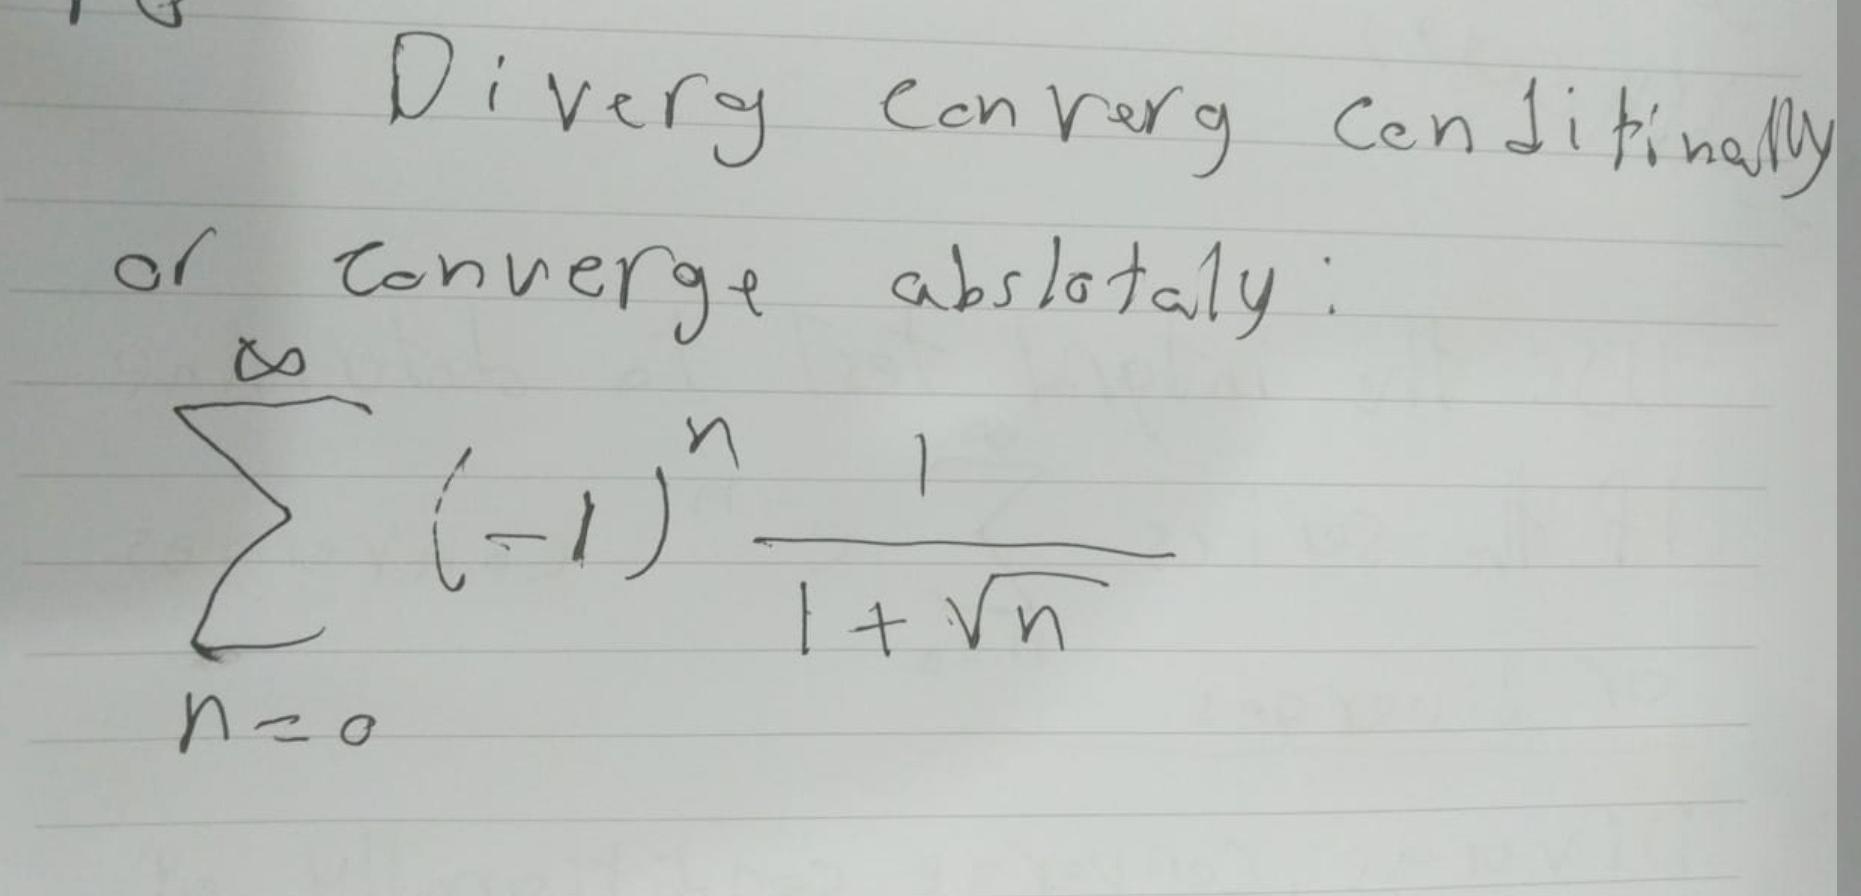 Diverg converg conditinally
or converge abslotaly:
∞
∑ (-1)^n 1/(1+√n)
n=0